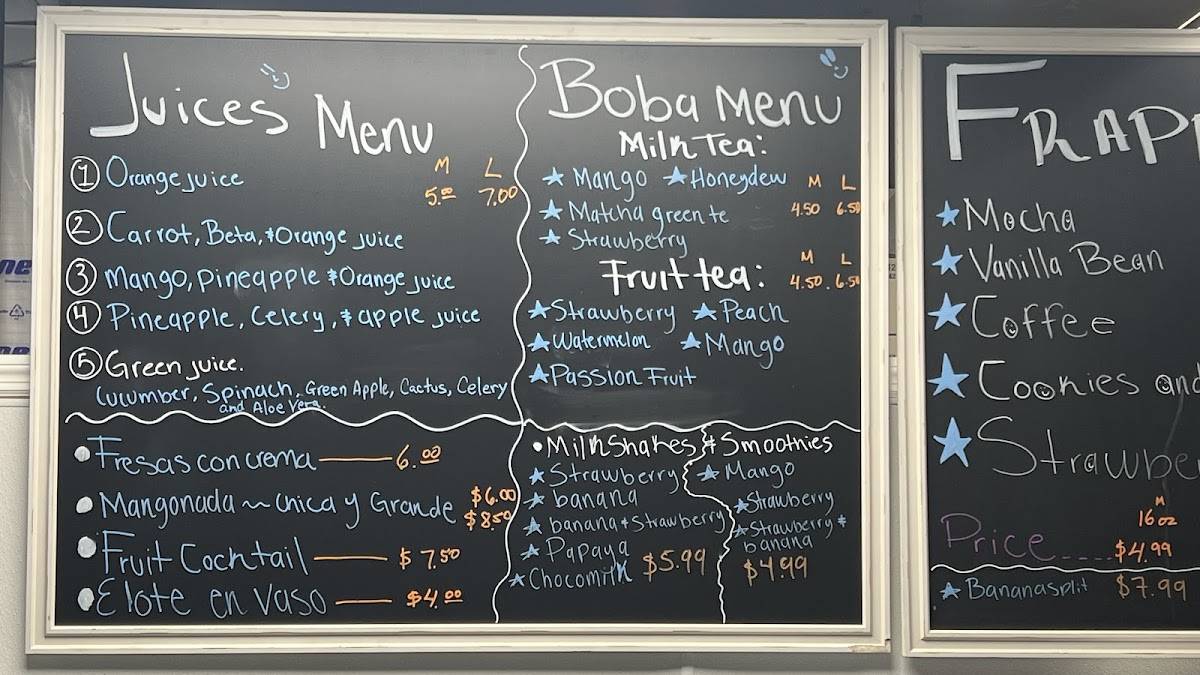 Juices Menu
M L
① Orange juice 5.00 7.00
② Carrot, Beta, & Orange juice
③ Mango, Pineapple & Orange juice
④ Pineapple, Celery, & apple juice
⑤ Green juice.
Cucumber, Spinach, Green Apple, Cactus, Celery
and Aloe Vera.
• Fresas con crema 6.00
• Mangonada ~ chica y Grande $6.00
$8.50
• Fruit Cocktail $7.50
• Elote en vaso $4.00
Boba Menu
Milk Tea:
★ Mango ★ Honeydew M L
★ Matcha green te 4.50 6.50
★ Strawberry
Fruit tea: M L
4.50. 6.50
★ Strawberry ★ Peach
★ Watermelon ★ Mango
★ Passion Fruit
• Milkshakes & Smoothies
★ Strawberry ★ Mango
★ banana ★ Strawberry
★ banana & Strawberry ★ Strawberry &
banana
★ Papaya $5.99 $4.99
★ Chocomilk
FRAPP
★ Mocha
★ Vanilla Bean
★ Coffee
★ Cookies and
★ Strawbe
M
16oz
Price.....$4.99
★ Bananasplit $7.99